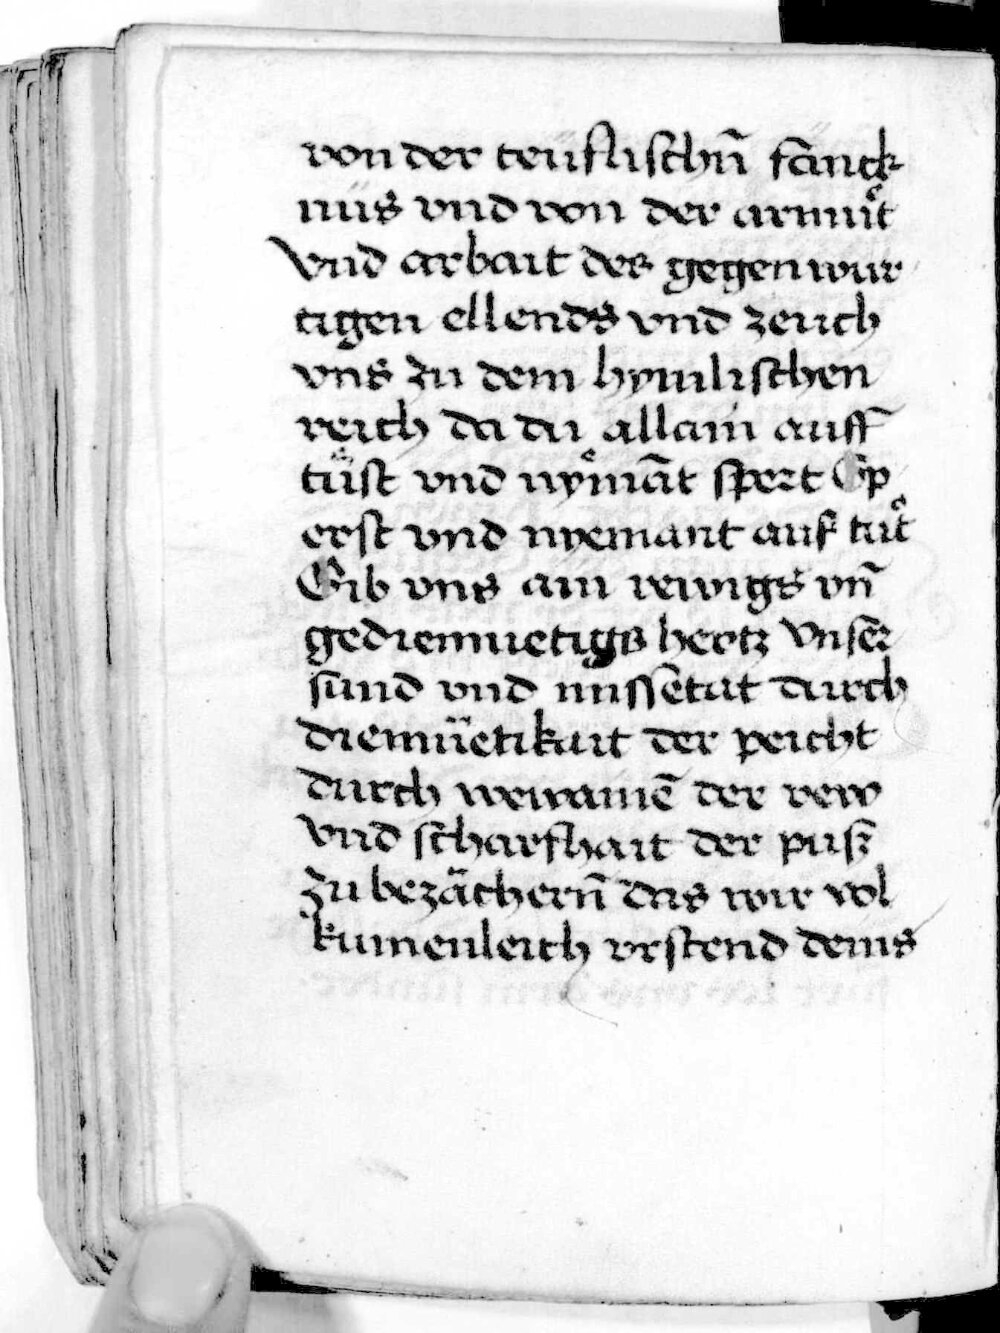 von der teüflischn̄ fanck-
nüs vnd von der armuͤt
Vnd arbait der gegenwur
tigen ellends vnd zeuch
vns zu dem hymlischen
reich da du allain auff
tuͤst vnd nyͤmāt spert Sp
erst vnd nyemant auf tuͤt
Gib vns ain rewigs vn̄
gediemuetigs hertz Vnser
sund vnd missetat durch
diemüetikait der peicht
durch wewainē der rew
Vnd scharfhait der puß
zu bezächern̄ das wir vol
kumenleich vrstend deins